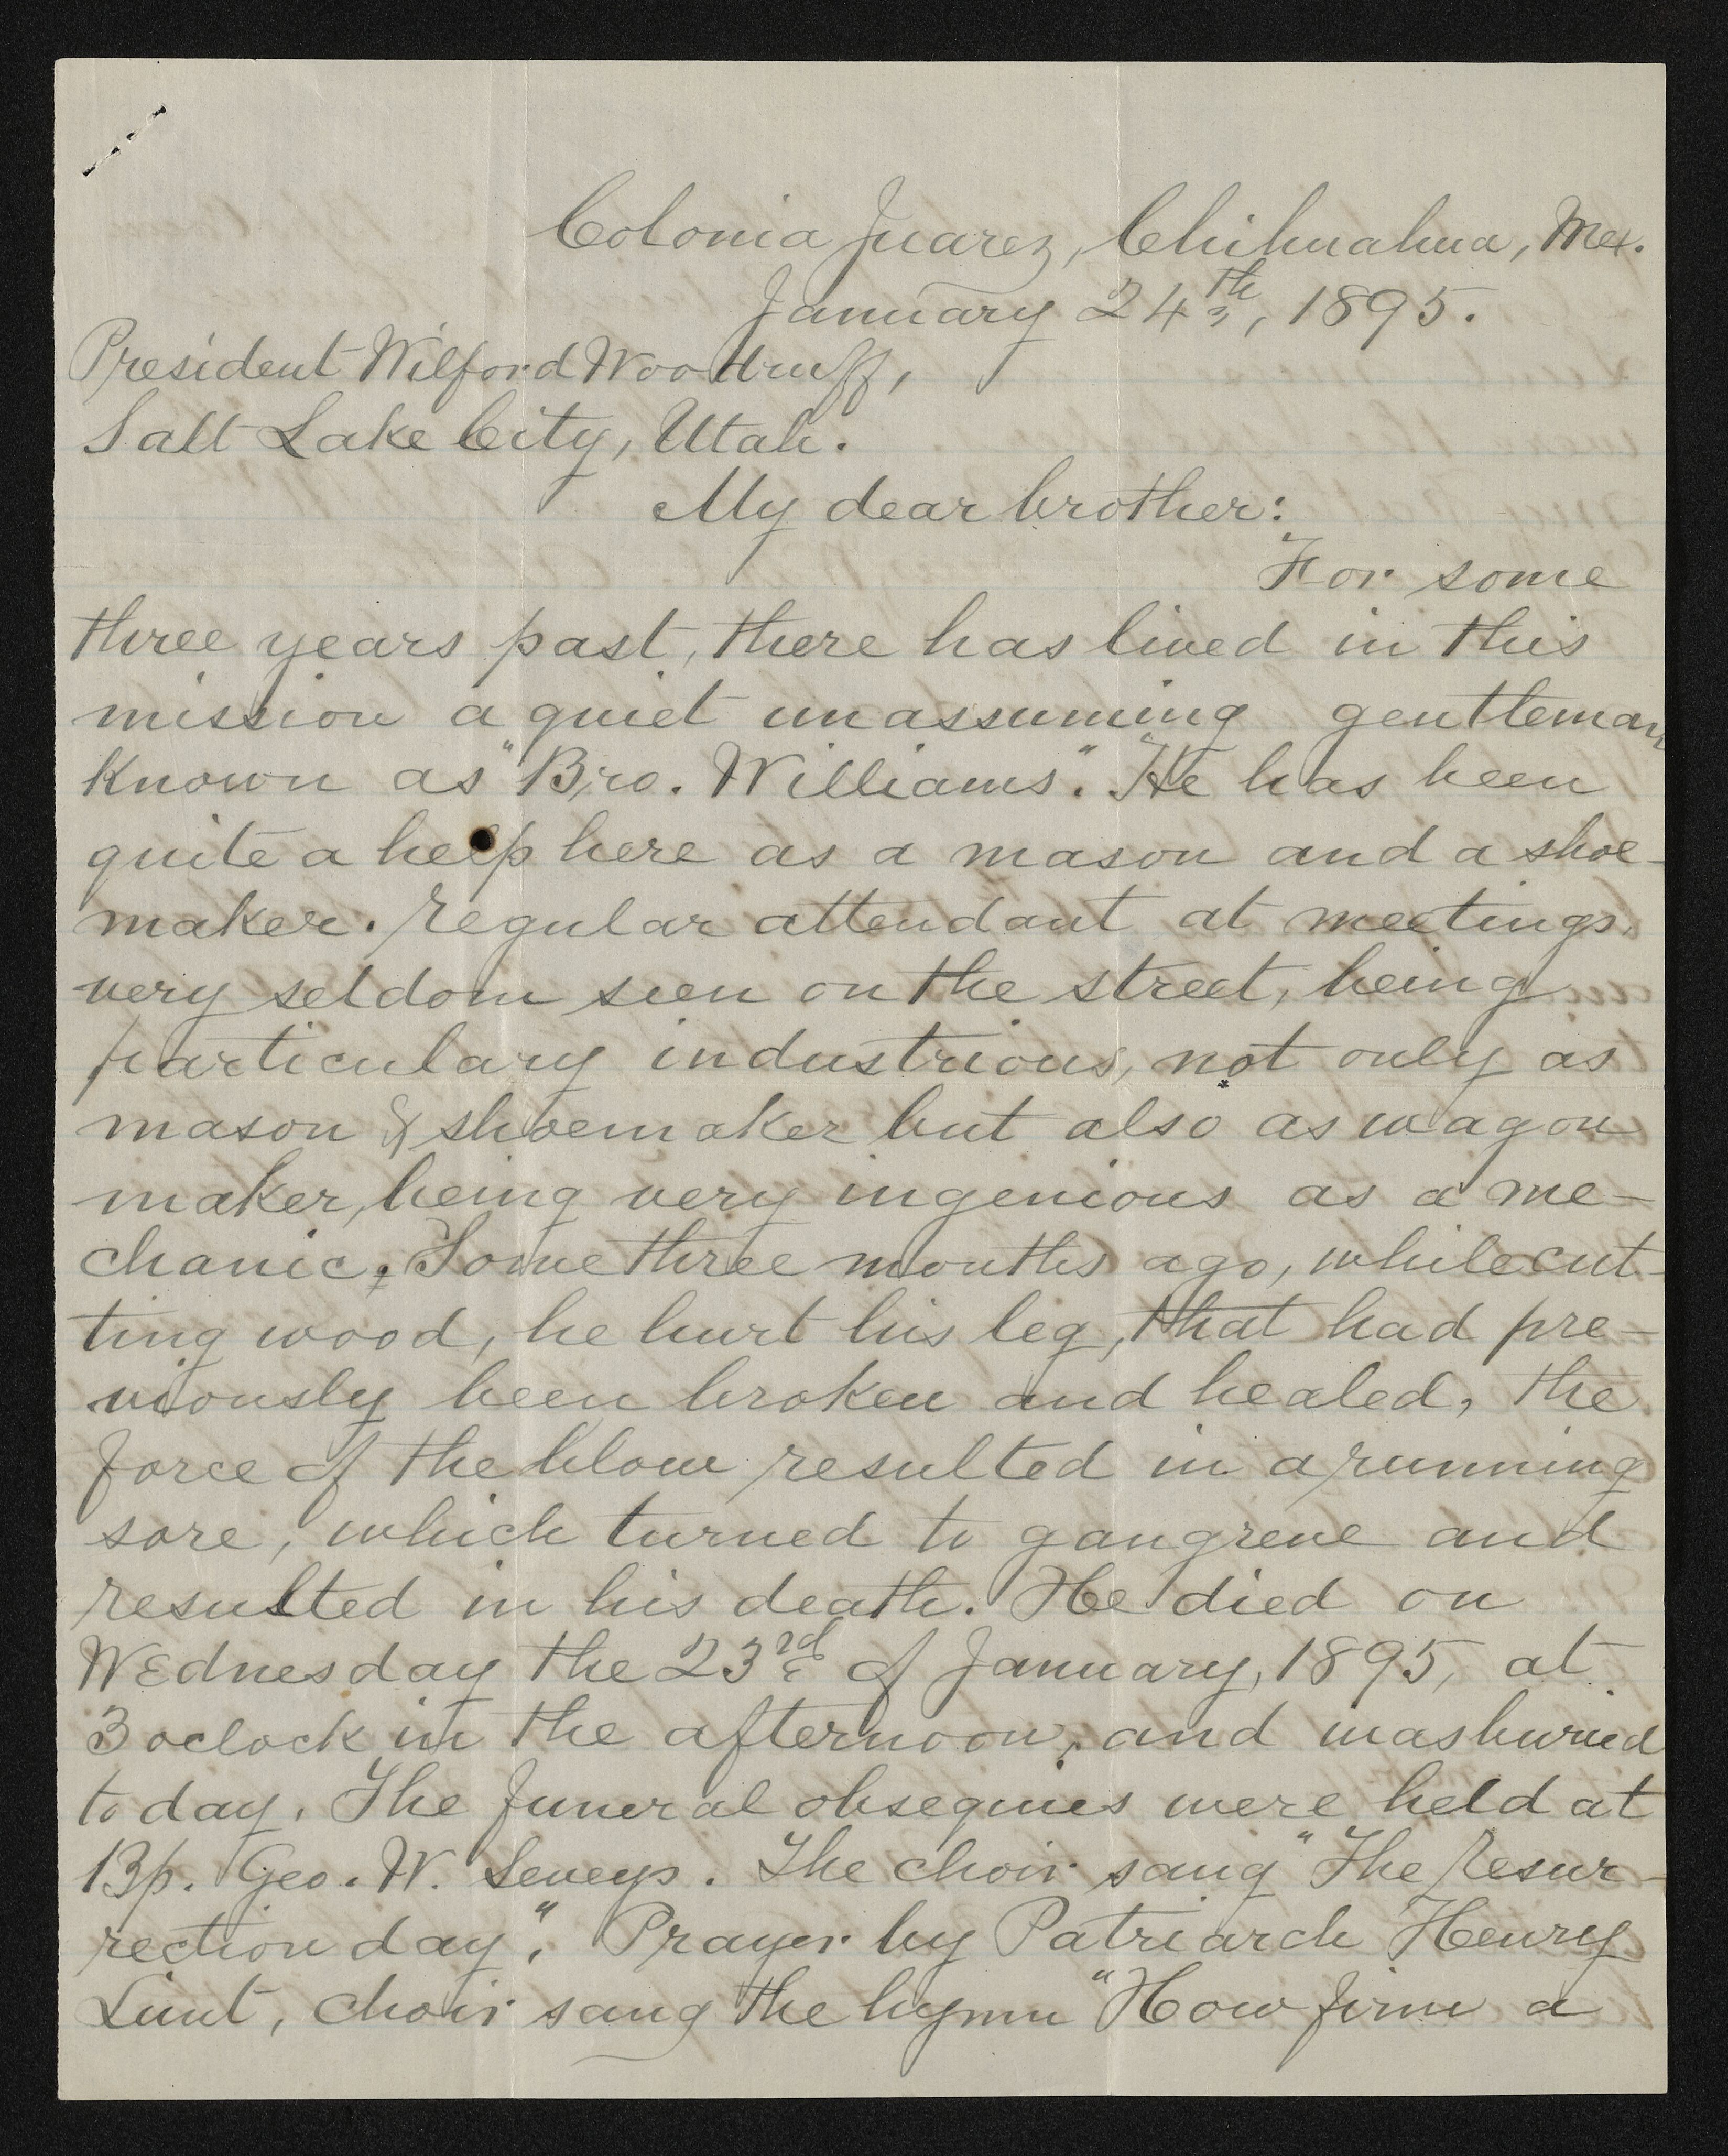 Colonia Juarez, Chihuahua, Mex.
January 24th, 1895.
President Wilford Woodruff,
Salt Lake City, Utah.
My dear brother:
For some
three years past, there has lived in this
mission a quiet unassuming gentleman
known as "Bro. Williams". He has been
quite a help here as a mason and a shoe-
maker. regular attendant at meetings,
very seldom seen on the street, being
particulary industrious, not only as
mason & shoemaker but also as wagon
maker, being very ingenious as a me-
chanic. Some three months ago, while cut-
ting wood, he hurt his leg, that had pre-
viously been broken and healed, the
force of the blow resulted in a running
sore, which turned to gangrene and
resulted in his death. He died on
Wednesday the 23rd of January, 1895, at
3 oclock in the afternoon, and was buried
to day. The funeral obsequies were held at
Bp. Geo. W. Seveys. The choir sang "The resur-
rection day". Prayer by Patriarch Henry
Lunt, choir sang the hymn "How firm a